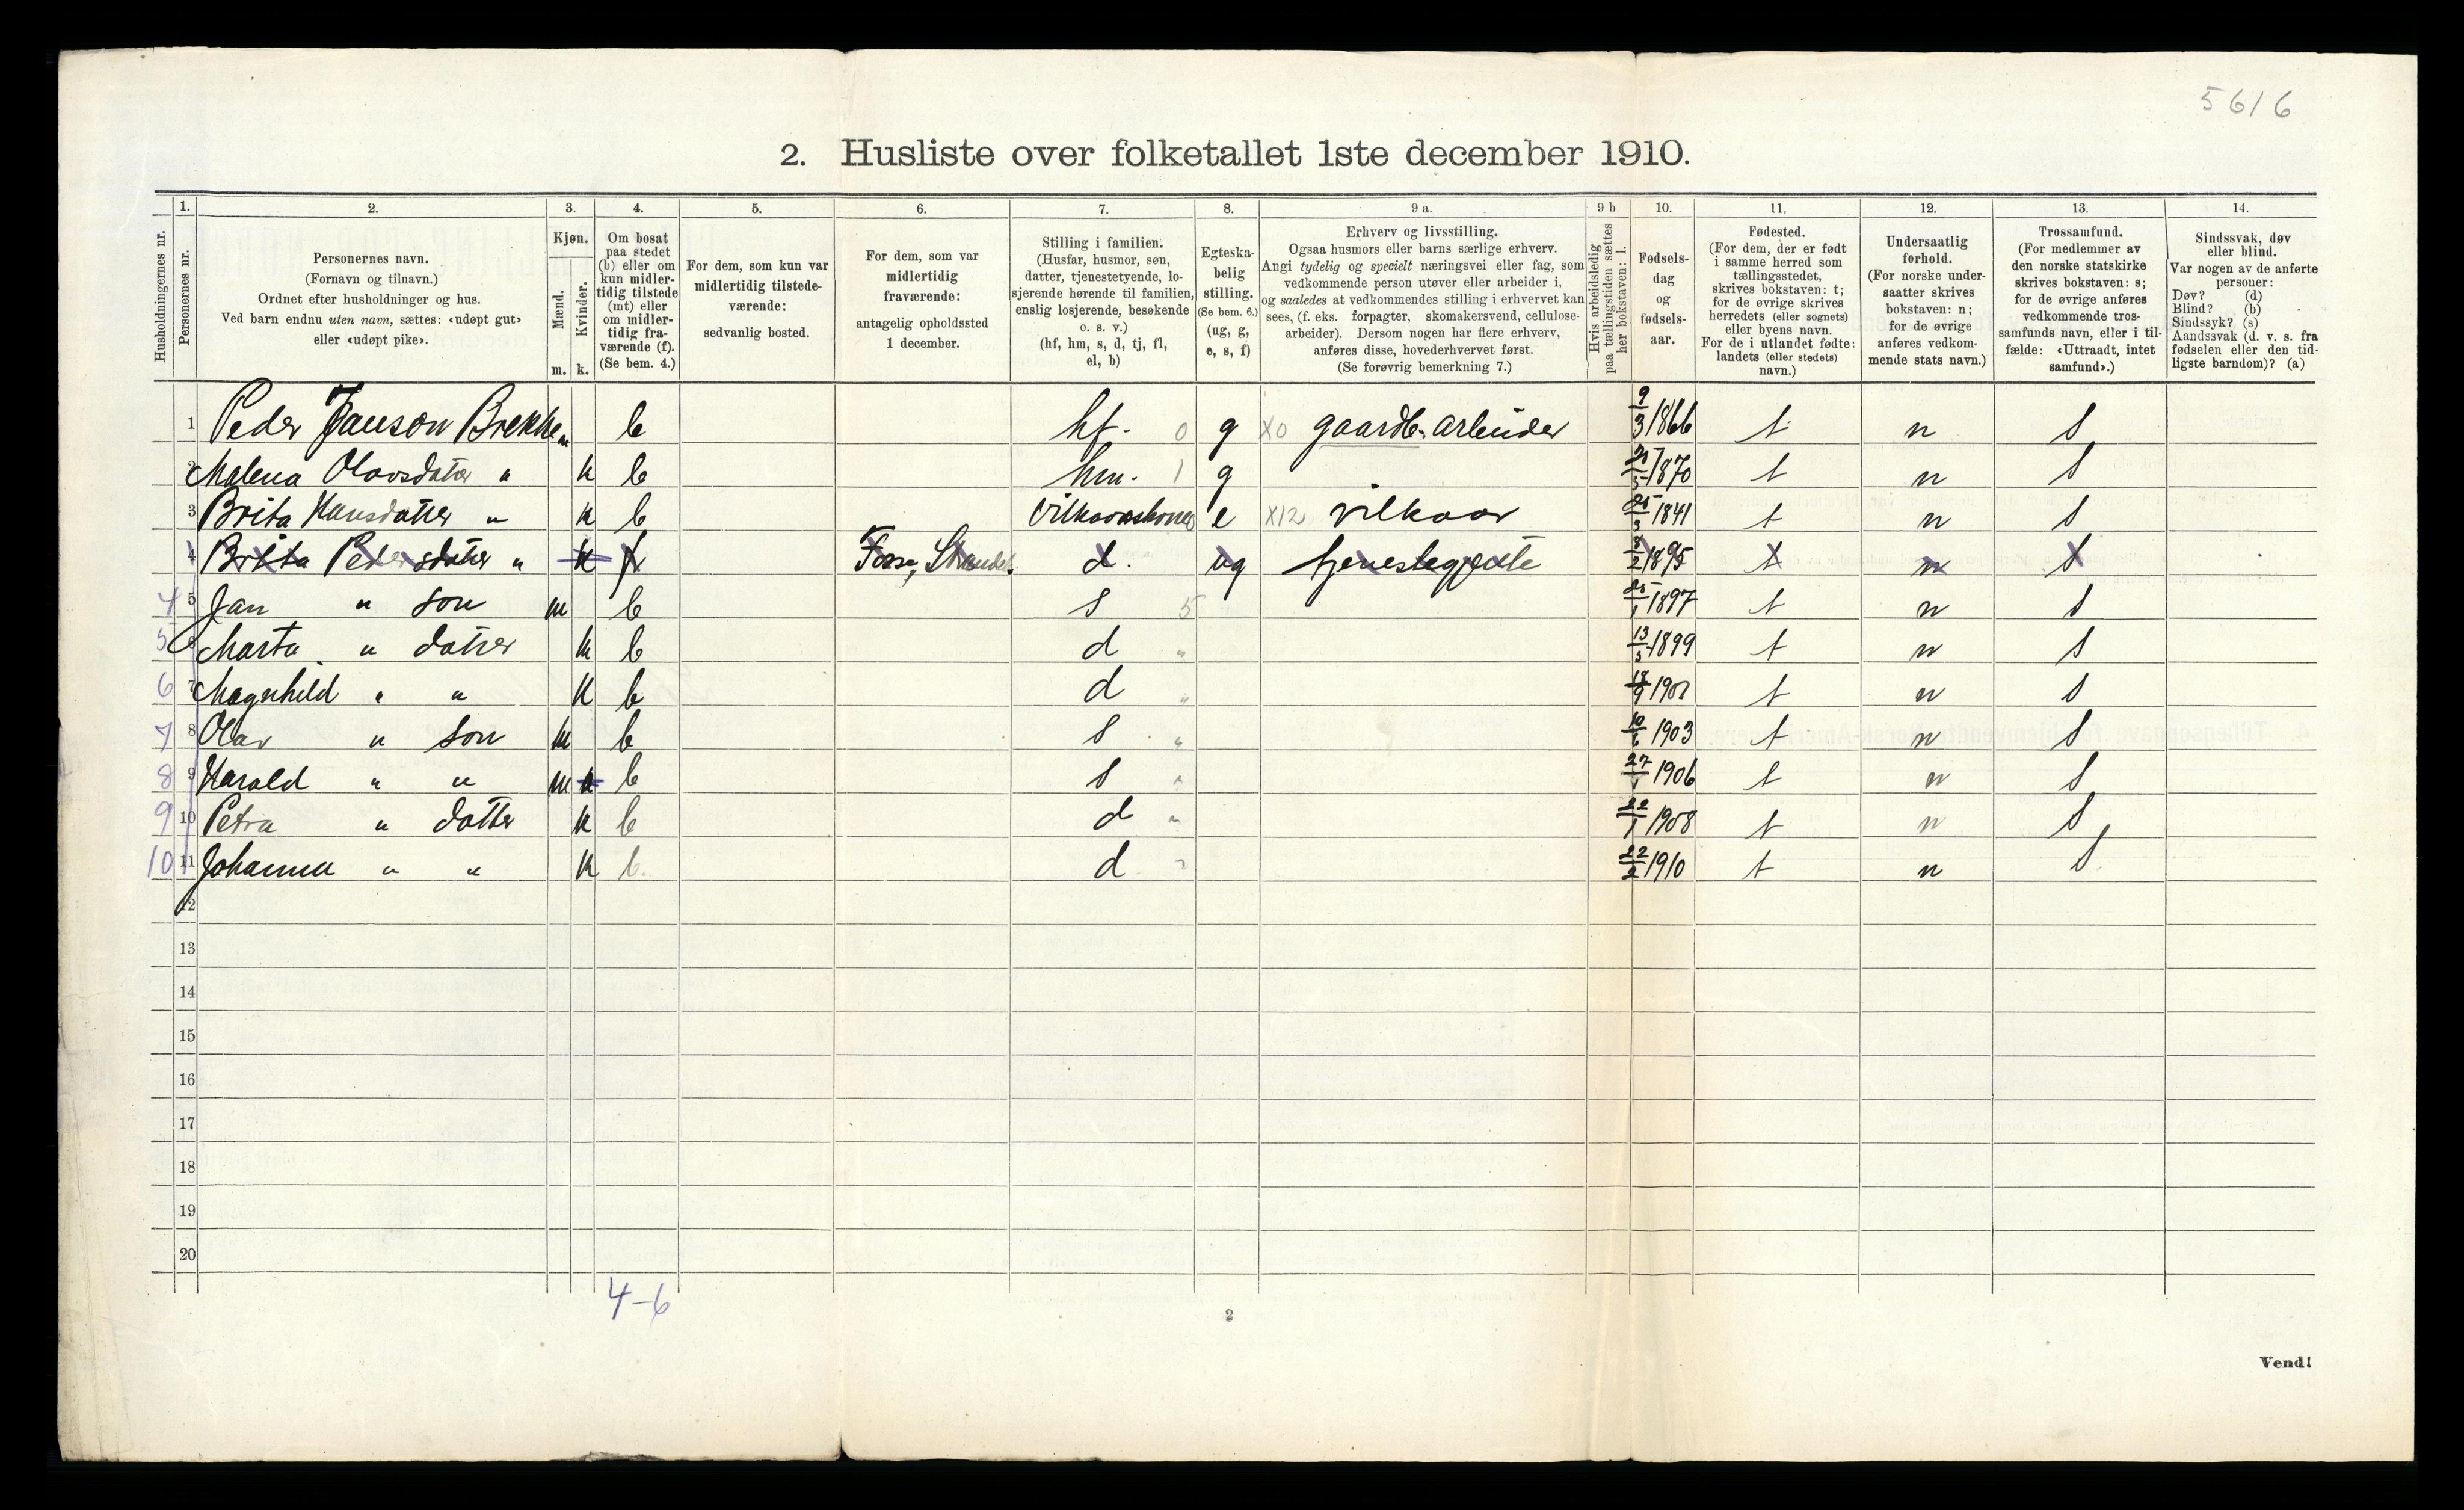 5616
2. Husliste over folketallet 1ste december 1910.
1. 2. 3. 4. 5. 6. 7. 8. 9 a. 9 b 10. 11, 12. 13. 14.
Husholdningernes nr.
Personernes nr.
Personernes navn.
(Fornavn og tilnavn.)
Ordnet efter husholdninger og hus.
Ved barn endnu uten navn, sættes: «udøpt gut»
eller «udøpt pike».
Kjøn.
Mænd.
Kvinder.
m. k.
Om bosat
paa stedet
(b) eller om
kun midler-
tidig tilstede
(mt) eller
om midler-
tidig fra-
værende (f).
(Se bem. 4.)
For dem, som kun var
midlertidig tilstede-
værende:
sedvanlig bosted.
For dem, som var
midlertidig
fraværende:
antagelig opholdssted
1 december.
Stilling i familien.
(Husfar, husmor, søn,
datter, tjenestetyende, lo-
sjerende hørende til familien,
enslig losjerende, besøkende
o. s. v.)
(hf, hm, s, d, tj, fl,
el, b)
Egteska-
belig
stilling.
(Se bem. 6.)
(ug, g,
e, s, f)
Erhverv og livsstilling.
Ogsaa husmors eller barns særlige erhverv.
Angi tydelig og specielt næringsvei eller fag, som
vedkommende person utøver eller arbeider i,
og saaledes at vedkommendes stilling i erhvervet kan
sees, (f. eks. forpagter, skomakersvend, cellulose-
arbeider). Dersom nogen har flere erhverv,
anføres disse, hovederhvervet først.
(Se forøvrig bemerkning 7.)
Hvis arbeidsledig
paa tællingstiden sættes
her bokstaven: l.
Fødsels-
dag
og
fødsels-
aar.
Fødested.
(For dem, der er født
i samme herred som
tællingsstedet,
skrives bokstaven: t;
for de øvrige skrives
herredets (eller sognets)
eller byens navn.
For de i utlandet fødte:
landets (eller stedets)
navn.)
Undersaatlig
forhold.
(For norske under-
saatter skrives
bokstaven: n;
for de øvrige
anføres vedkom-
mende stats navn.)
Trossamfund.
(For medlemmer av
den norske statskirke
skrives bokstaven: s;
for de øvrige anføres
vedkommende tros-
samfunds navn, eller i til-
fælde: «Uttraadt, intet
samfund».)
Sindssvak, døv
eller blind.
Var nogen av de anførte
personer:
Døv? (d)
Blind? (b)
Sindssyk? (s)
Aandssvak (d. v. s. fra
fødselen eller den tid-
ligste barndom)? (a)
1 Peder Janson Brekke m b hf. 0 g X0 gaardb. arbeider 9/3 1866 t n s
2 Malena Olavsdatter " k b hm. 1 g 1870 t n s
3 Brita Hansdatter " k b vilkaarskone e X12 vilkaar 25/3 1841 t n s
4 Brita Pedersdatter " k f Fosse, d. ug tjenestegjente 8/2 1895 t n s
4 5 Jan " son m b s 5 25/1 1897 t n s
5 6 Marta " datter k b d " 13/5 1899 t n s
6 7 Magnhild " " k b d " 18/9 1901 t n s
7 8 Olav " son m b s " 10/6 1903 t n s
8 9 Harald " " m k b s " 27/1 1906 t n s
9 10 Petra " datter k b d " 22/1 1908 t n s
10 11 Johanna " " k b. d " 22/2 1910 t n s
12
13
14
15
16
17
18
19
20
4-6
2
Vend!